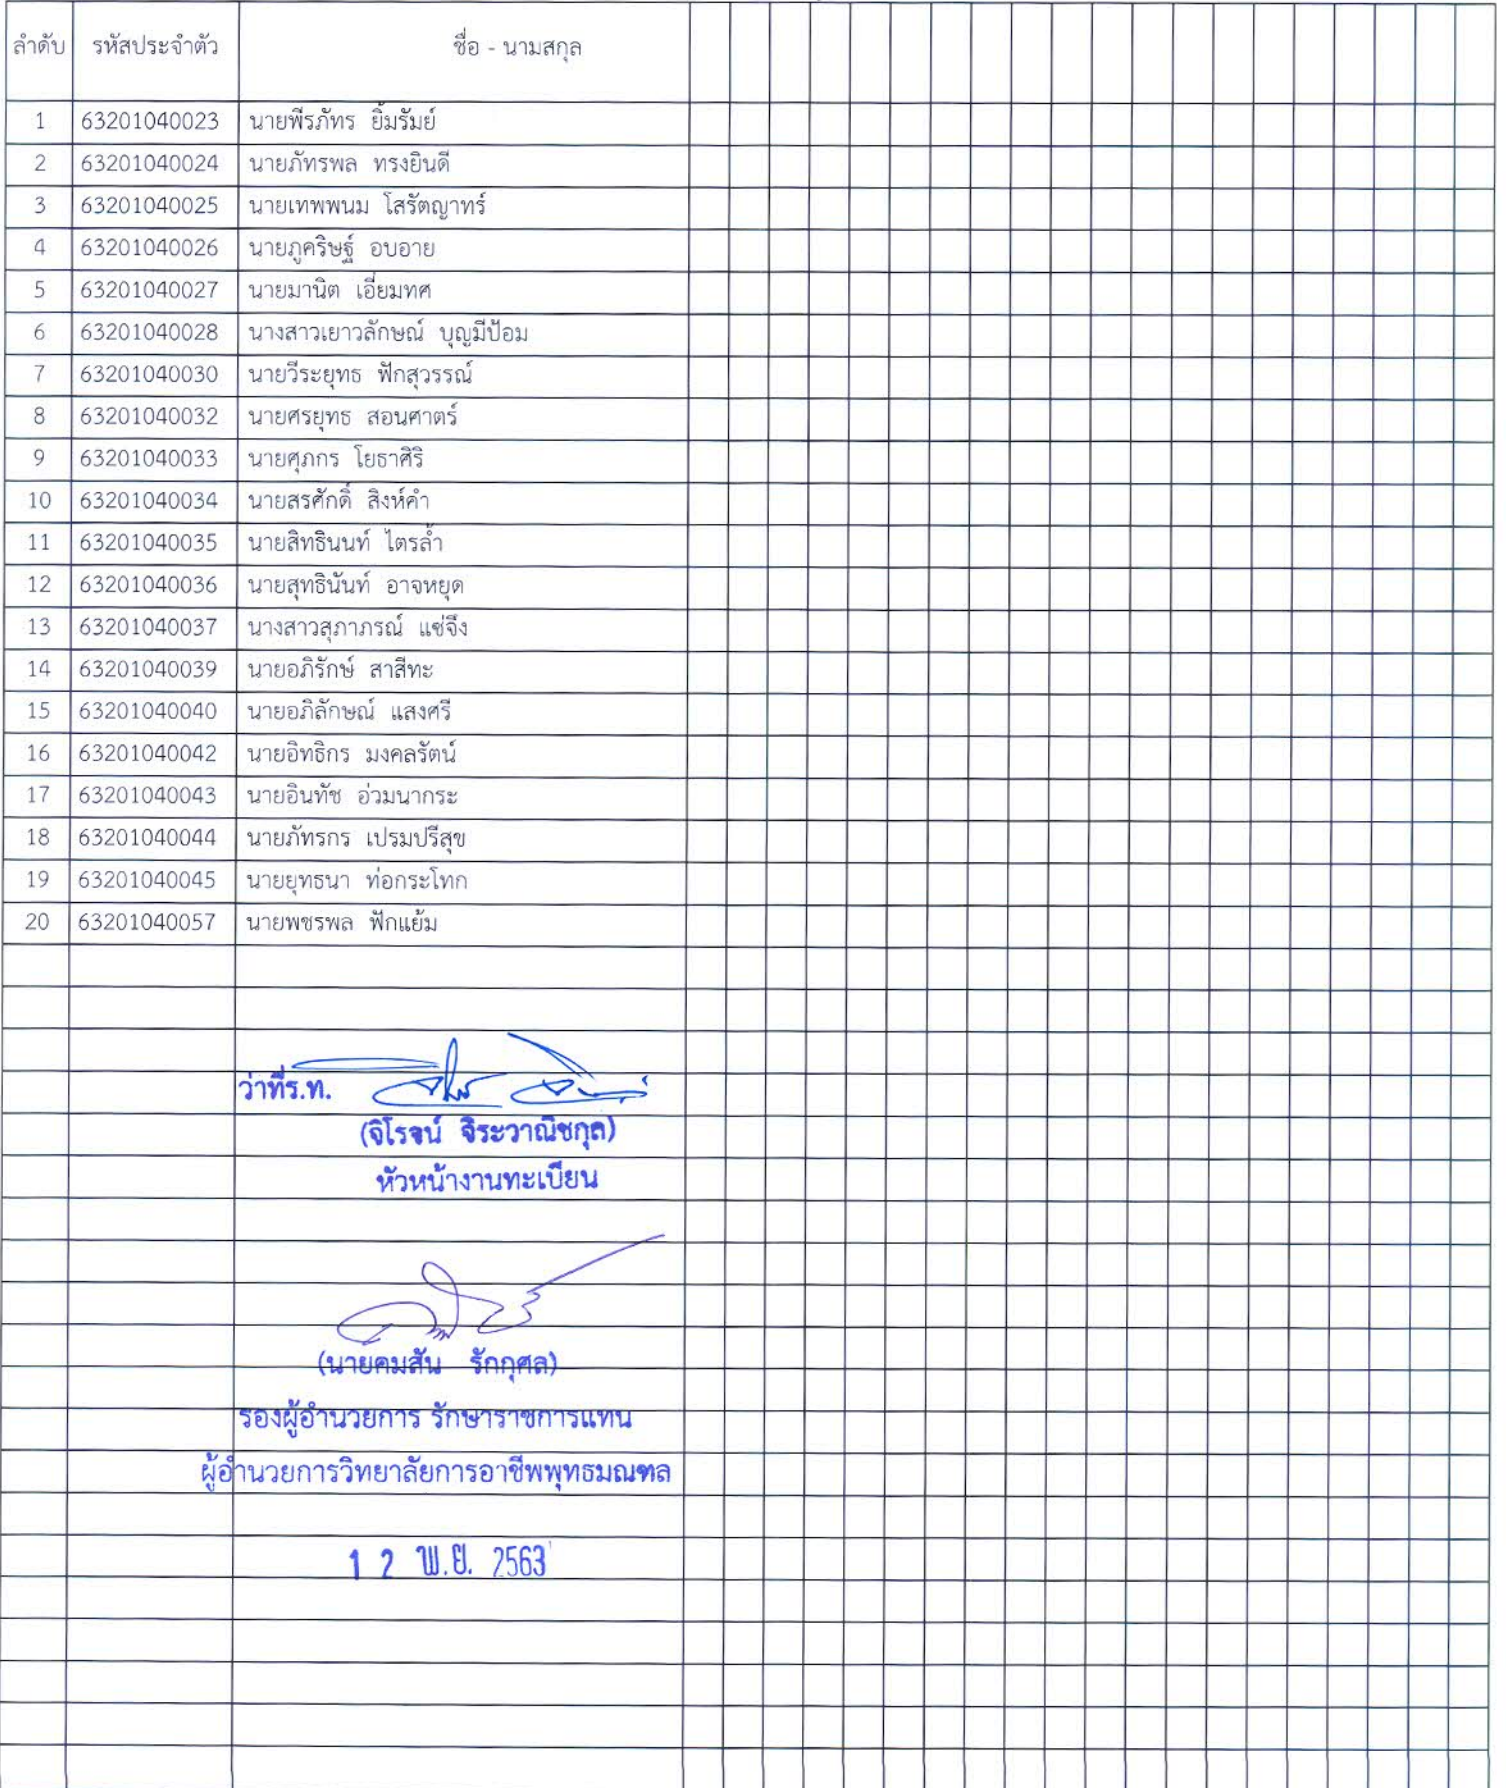 ลำดับ รหัสประจำตัว ชื่อ - นามสกุล
1 63201040023 นายพีรภัทร ยิ้มรัมย์
2 63201040024 นายภัทรพล ทรงยินดี
3 63201040025 นายเทพพนม โสรัตญาทร์
4 63201040026 นายภูคริษฐ์ อบอาย
5 63201040027 นายมานิต เอี่ยมทศ
6 63201040028 นางสาวเยาวลักษณ์ บุญมีป้อม
7 63201040030 นายวีระยุทธ ฟักสุวรรณ์
8 63201040032 นายศรยุทธ สอนศาตร์
9 63201040033 นายศุภกร โยธาศิริ
10 63201040034 นายสรศักดิ์ สิงห์คำ
11 63201040035 นายสิทธินนท์ ไตรล้ำ
12 63201040036 นายสุทธินันท์ อาจหยุด
13 63201040037 นางสาวสุภาภรณ์ แซ่จึง
14 63201040039 นายอภิรักษ์ สาสีทะ
15 63201040040 นายอภิลักษณ์ แสงศรี
16 63201040042 นายอิทธิกร มงคลรัตน์
17 63201040043 นายอินทัช อ่วมนากระ
18 63201040044 นายภัทรกร เปรมปรีสุข
19 63201040045 นายยุทธนา ท่อกระโทก
20 63201040057 นายพชรพล ฟักแย้ม
ว่าที่ร.ท.
(จิโรจน์ จิระวาณิชกุล)
หัวหน้างานทะเบียน
(นายคมสัน รักกุศล)
รองผู้อำนวยการ รักษาราชการแทน
ผู้อำนวยการวิทยาลัยการอาชีพพุทธมณฑล
1 2 พ.ย. 2563